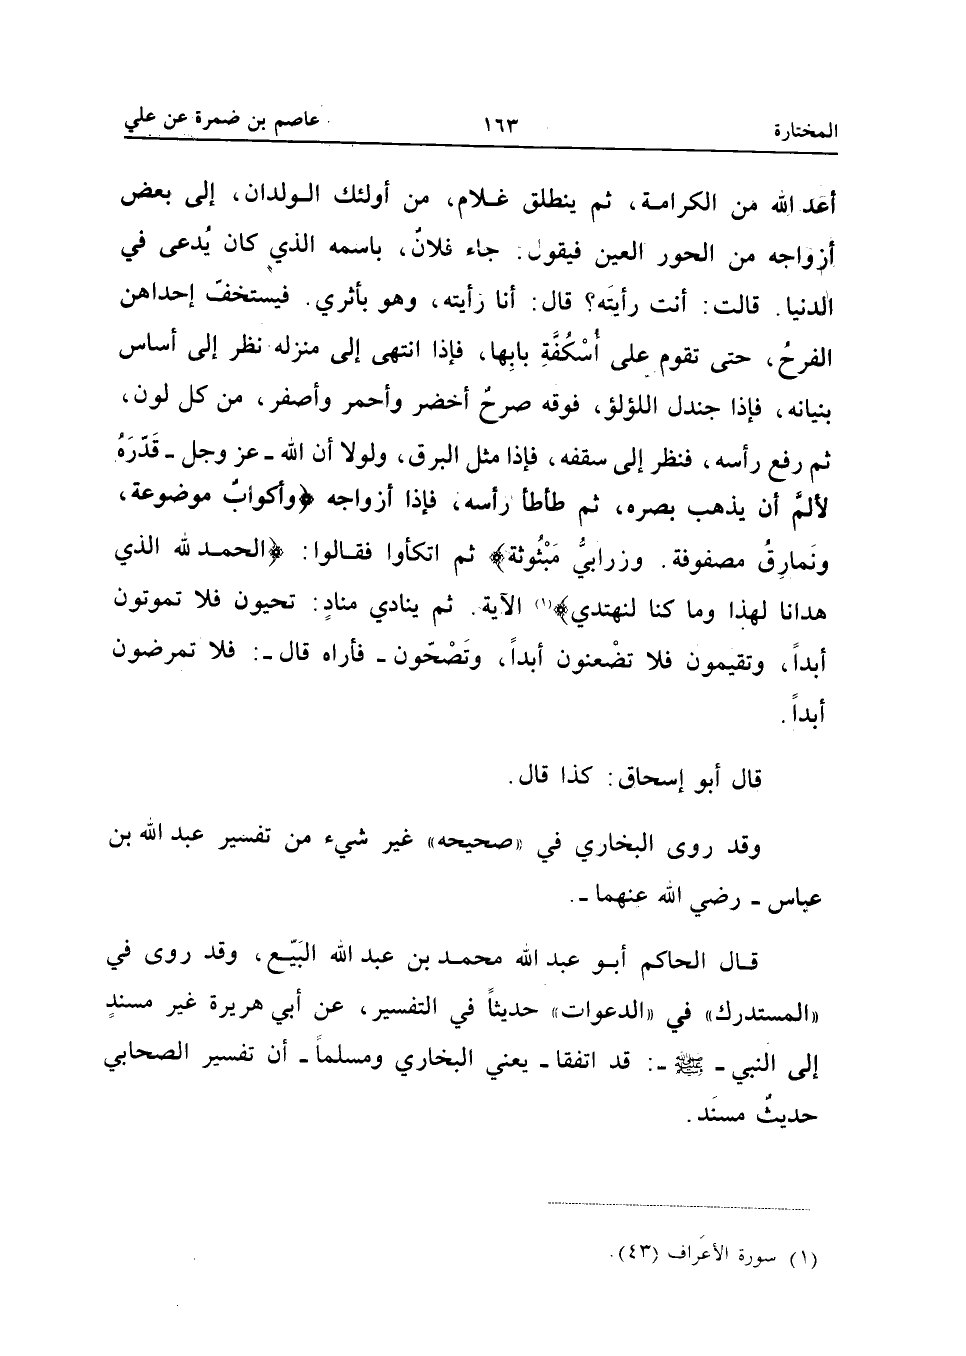 المختارة ١٦٣ عاصم بن ضمرة عن علي
أعد الله من الكرامة، ثم ينطلق غلام، من أولئك الولدان، إلى بعض
أزواجه من الحور العين فيقول: جاء فلانٌ، باسمه الذي كان يُدعى في
الدنيا. قالت: أنت رأيتَه؟ قال: أنا رَأيته، وهو بأثري. فيستخفّ إحداهن
الفرحُ، حتى تقوم على أُسْكُفَّةِ بابِها، فإذا انتهى إلى منزله نظر إلى أساس
بنيانه، فإذا جندل اللؤلؤ، فوقه صرحٌ أخضر وأحمر وأصفر، من كل لون،
ثم رفع رأسه، فنظر إلى سقفه، فإذا مثل البرق، ولولا أن الله ـ عز وجل ـ قَدّرَهُ
لألمَّ أن يذهب بصره، ثم طأطأ رأسه، فإذا أزواجه ﴿وأكوابٌ موضوعة،
ونَمارِقُ مصفوفة. وزرابيُّ مَبْثُوثة﴾ ثم اتكأوا فقالوا: ﴿الحمد لله الذي
هدانا لهذا وما كنا لنهتدي﴾(١) الآية. ثم ينادي منادٍ: تحيون فلا تموتون
أبداً، وتقيمون فلا تضْعنون أبداً، وتَصْحّون ـ فأراه قال ـ: فلا تمرضون
أبداً.
قال أبو إسحاق: كذا قال.
وقد روى البخاري في «صحيحه» غير شيء من تفسير عبد الله بن
عباس ـ رضي الله عنهما ـ.
قال الحاكم أبو عبد الله محمد بن عبد الله البَيّع، وقد روى في
«المستدرك» في «الدعوات» حديثاً في التفسير، عن أبي هريرة غير مسندٍ
إلى النبي ـ ﷺ ـ: قد اتفقا ـ يعني البخاري ومسلماً ـ أن تفسير الصحابي
حديثٌ مسنَد.
(١) سورة الأعراف (٤٣).